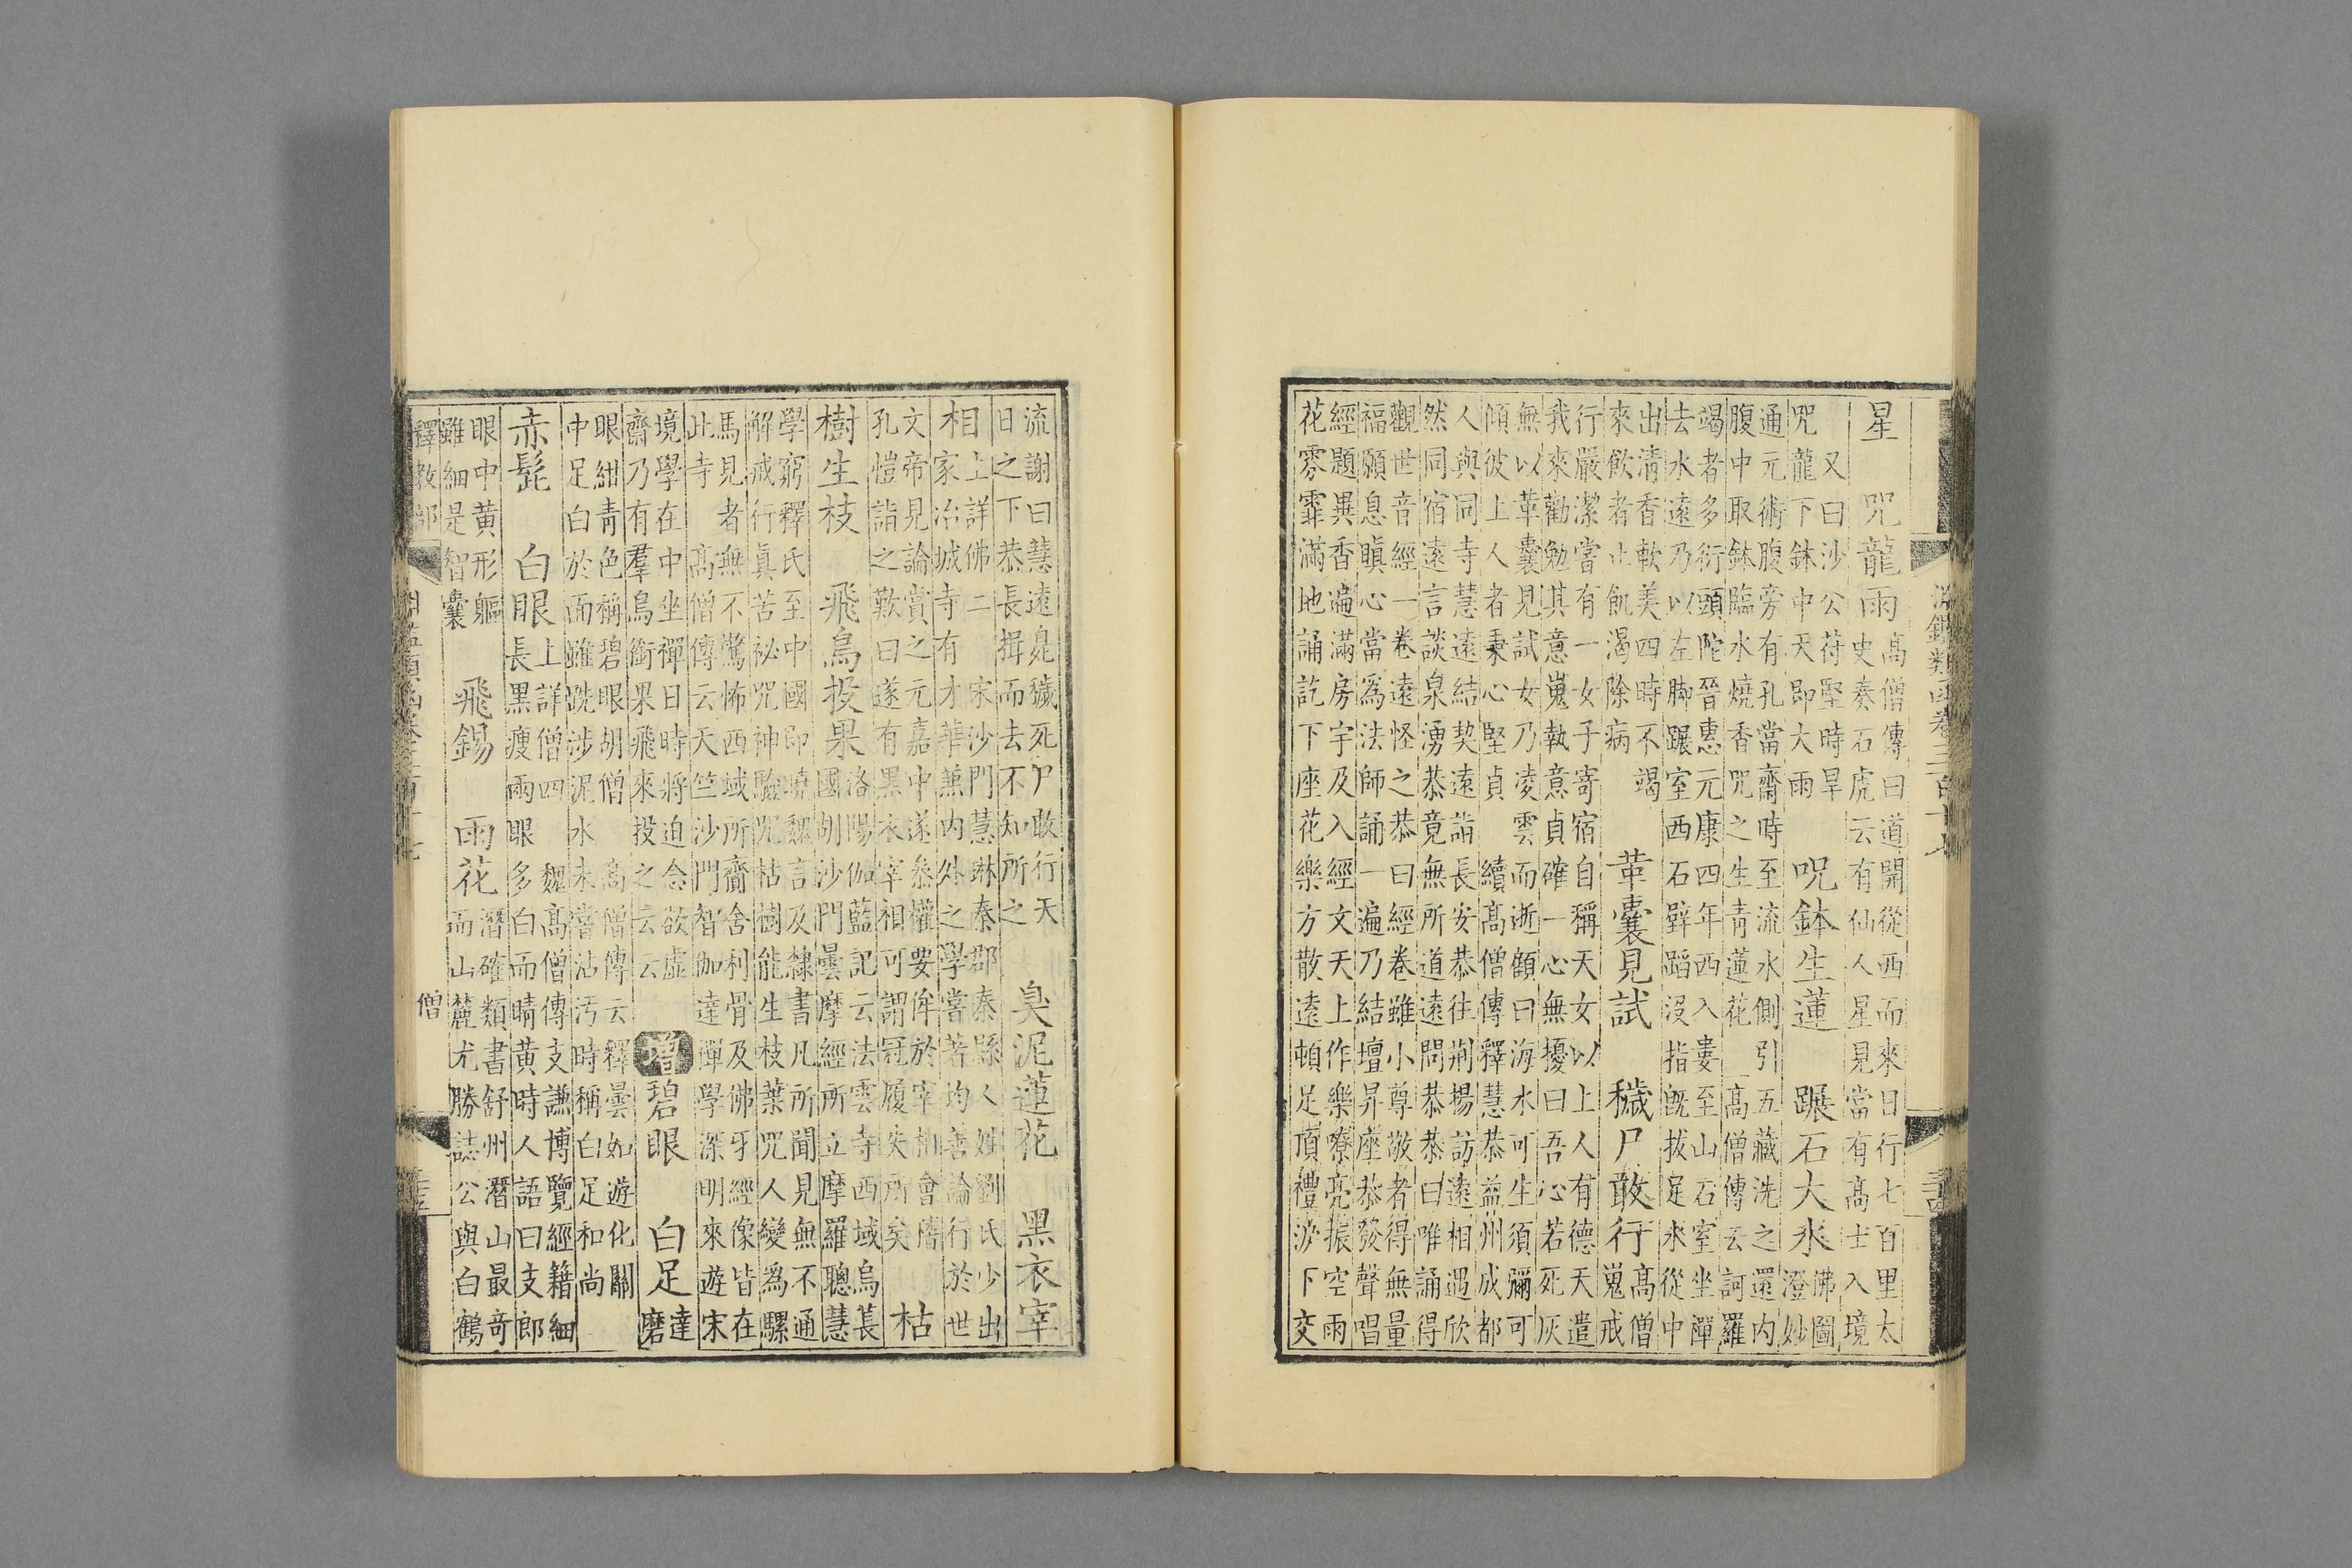 淵鑑類函卷三百十七
星 呪龍雨 高僧傳曰道開從西而來日行七百里太
史奏石虎云有仙人星見當有高士入境
又曰沙公苻堅時旱
咒龍下鉢中天即大雨 呪鉢生蓮 蹍石大水 佛圖
澄妙
通元術腹旁有孔當齋時至流水側引五藏洗之還内
腹中取鉢臨水燒香咒之生青蓮花 高僧傳云訶羅
竭者多衍頭陀晉惠元康四年西入婁至山石室坐禪
去水遠乃以左脚蹍室西石壁蹈沒指旣拔足水從中
出清香軟美四時不竭
來飲者止飢渴除病 革囊見試 穢尸敢行 高僧
嵬戒
行嚴潔嘗有一女子寄宿自稱天女以上人有德天遣
我來勸勉其意嵬執意貞確一心無擾曰吾心若死灰
無以革囊見試女乃凌雲而逝顧曰海水可生須彌可
傾彼上人者秉心堅貞 續高僧傳釋慧恭益州成都
人與同寺慧遠結契遠詣長安恭往荆揚訪遠相遇欣
然同宿遠言談泉湧恭竟無所道遠問恭恭曰唯誦得
觀世音經一卷遠怪之恭曰經卷雖小尊敬者得無量
福願息瞋心當爲法師誦一遍乃結壇昇座恭發聲唱
經題異香遍滿房宇及入經文天上作樂嘹亮振空雨
花雰霏滿地誦訖下座花樂方散遠頓足頂禮淚下交
流謝曰慧遠臰穢死尸敢行天
日之下恭長揖而去不知所之 臭泥蓮花 黑衣宰
相 上詳佛二 宋沙門慧琳秦郡秦縣人姓劉氏少出
家冶城寺有才華兼内外之學嘗著均善論行於世
文帝見論賞之元嘉中遂參權要侔於宰相會稽
孔愷詣之歎曰遂有黑衣宰相可謂冠履失所矣 枯
樹生枝 飛鳥投果 洛陽伽藍記云法雲寺西域烏萇
國胡沙門曇摩經所立摩羅聰慧
學窮釋氏至中國即曉魏言及隸書凡所聞見無不通
解戒行真苦祕咒神驗咒枯樹能生枝葉咒人變爲騾
馬見者無不驚怖西域所齎舍利骨及佛牙經像皆在
此寺 高僧傳云天竺沙門智伽達禪學深明來遊宋
境學在中坐禪日時將迫念欲虛
齋乃有羣鳥銜果飛來投之云云 增 碧眼 白足 達
磨
眼紺青色稱碧眼胡僧 高僧傳云釋曇如遊化關
中足白於面雖跣涉泥水未嘗沾汚時稱白足和尚
赤髭 白眼 上詳僧四 魏高僧傳支謙博覽經籍細
長黑瘦兩眼多白而睛黄時人語曰支郎
眼中黄形軀
雖細是智囊 飛錫 雨花 潛確類書舒州潛山最奇
而山麓尤勝誌公與白鶴
釋教部 僧